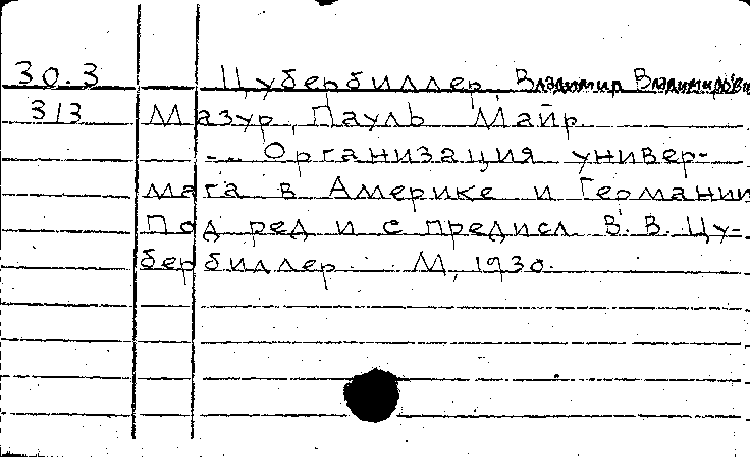 30.3 Цубербиллер, Владимир Владимирови
313 Мазур, Пауль Майр.
-- Организация универ-
мага в Америке и Германии
Под ред и с предисл В. В. Цу-
бербиллер. М, 1930.